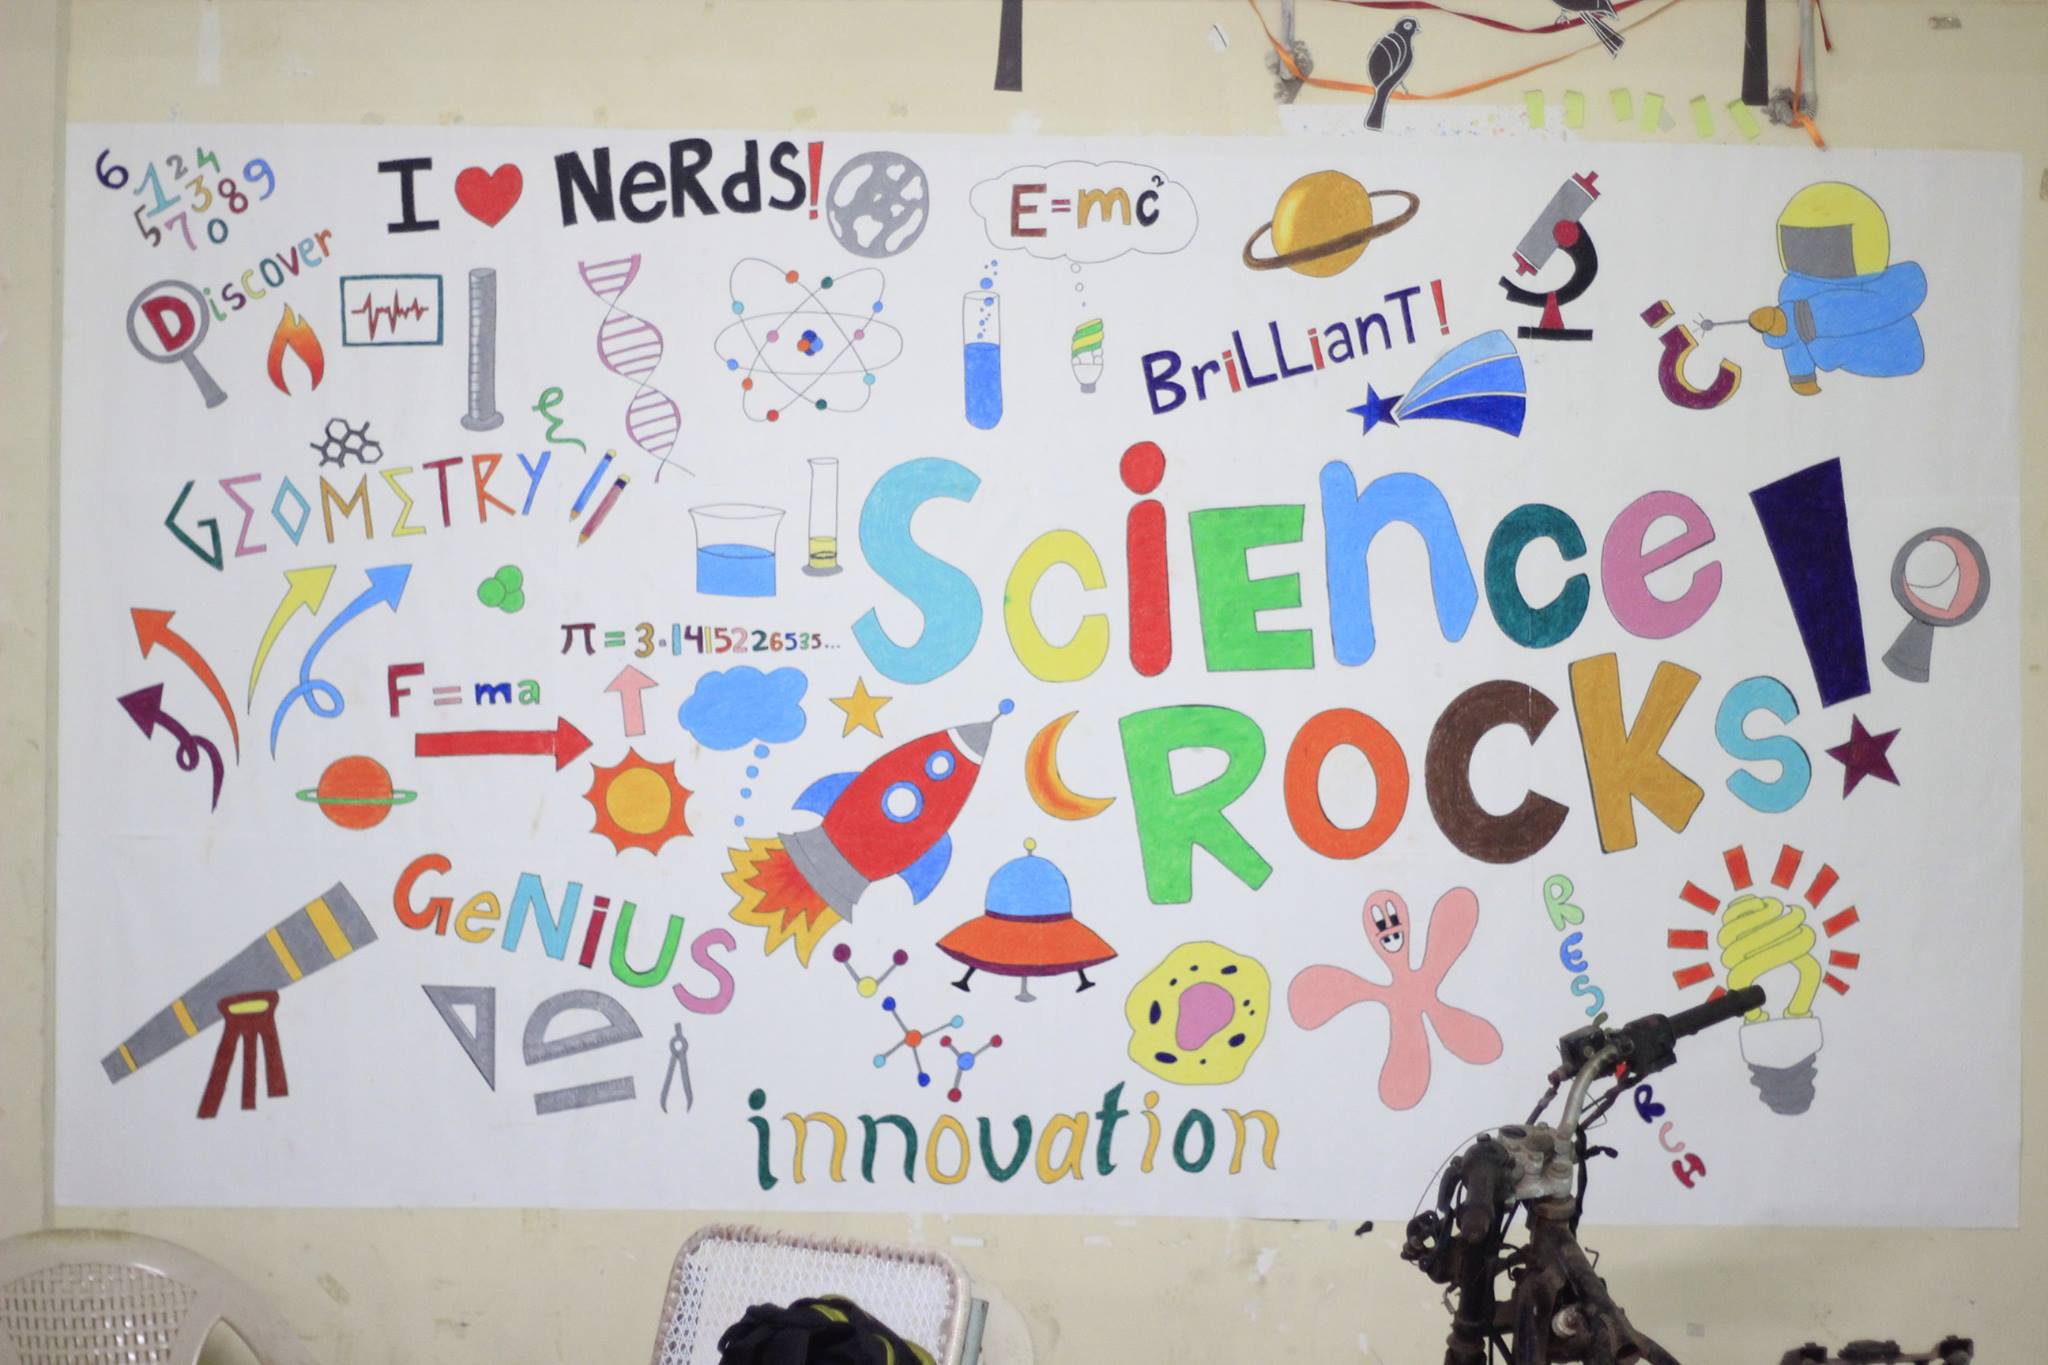 6 1 2 4
5 7 3 8 9
0
I ❤ NeRds!
E=mc²
Discover
BriLLianT!
GEOMETRY
SciEnce
ROCKS!
π=3.1415226535...
F=ma
GeNiUS
RES
RCH
innovation